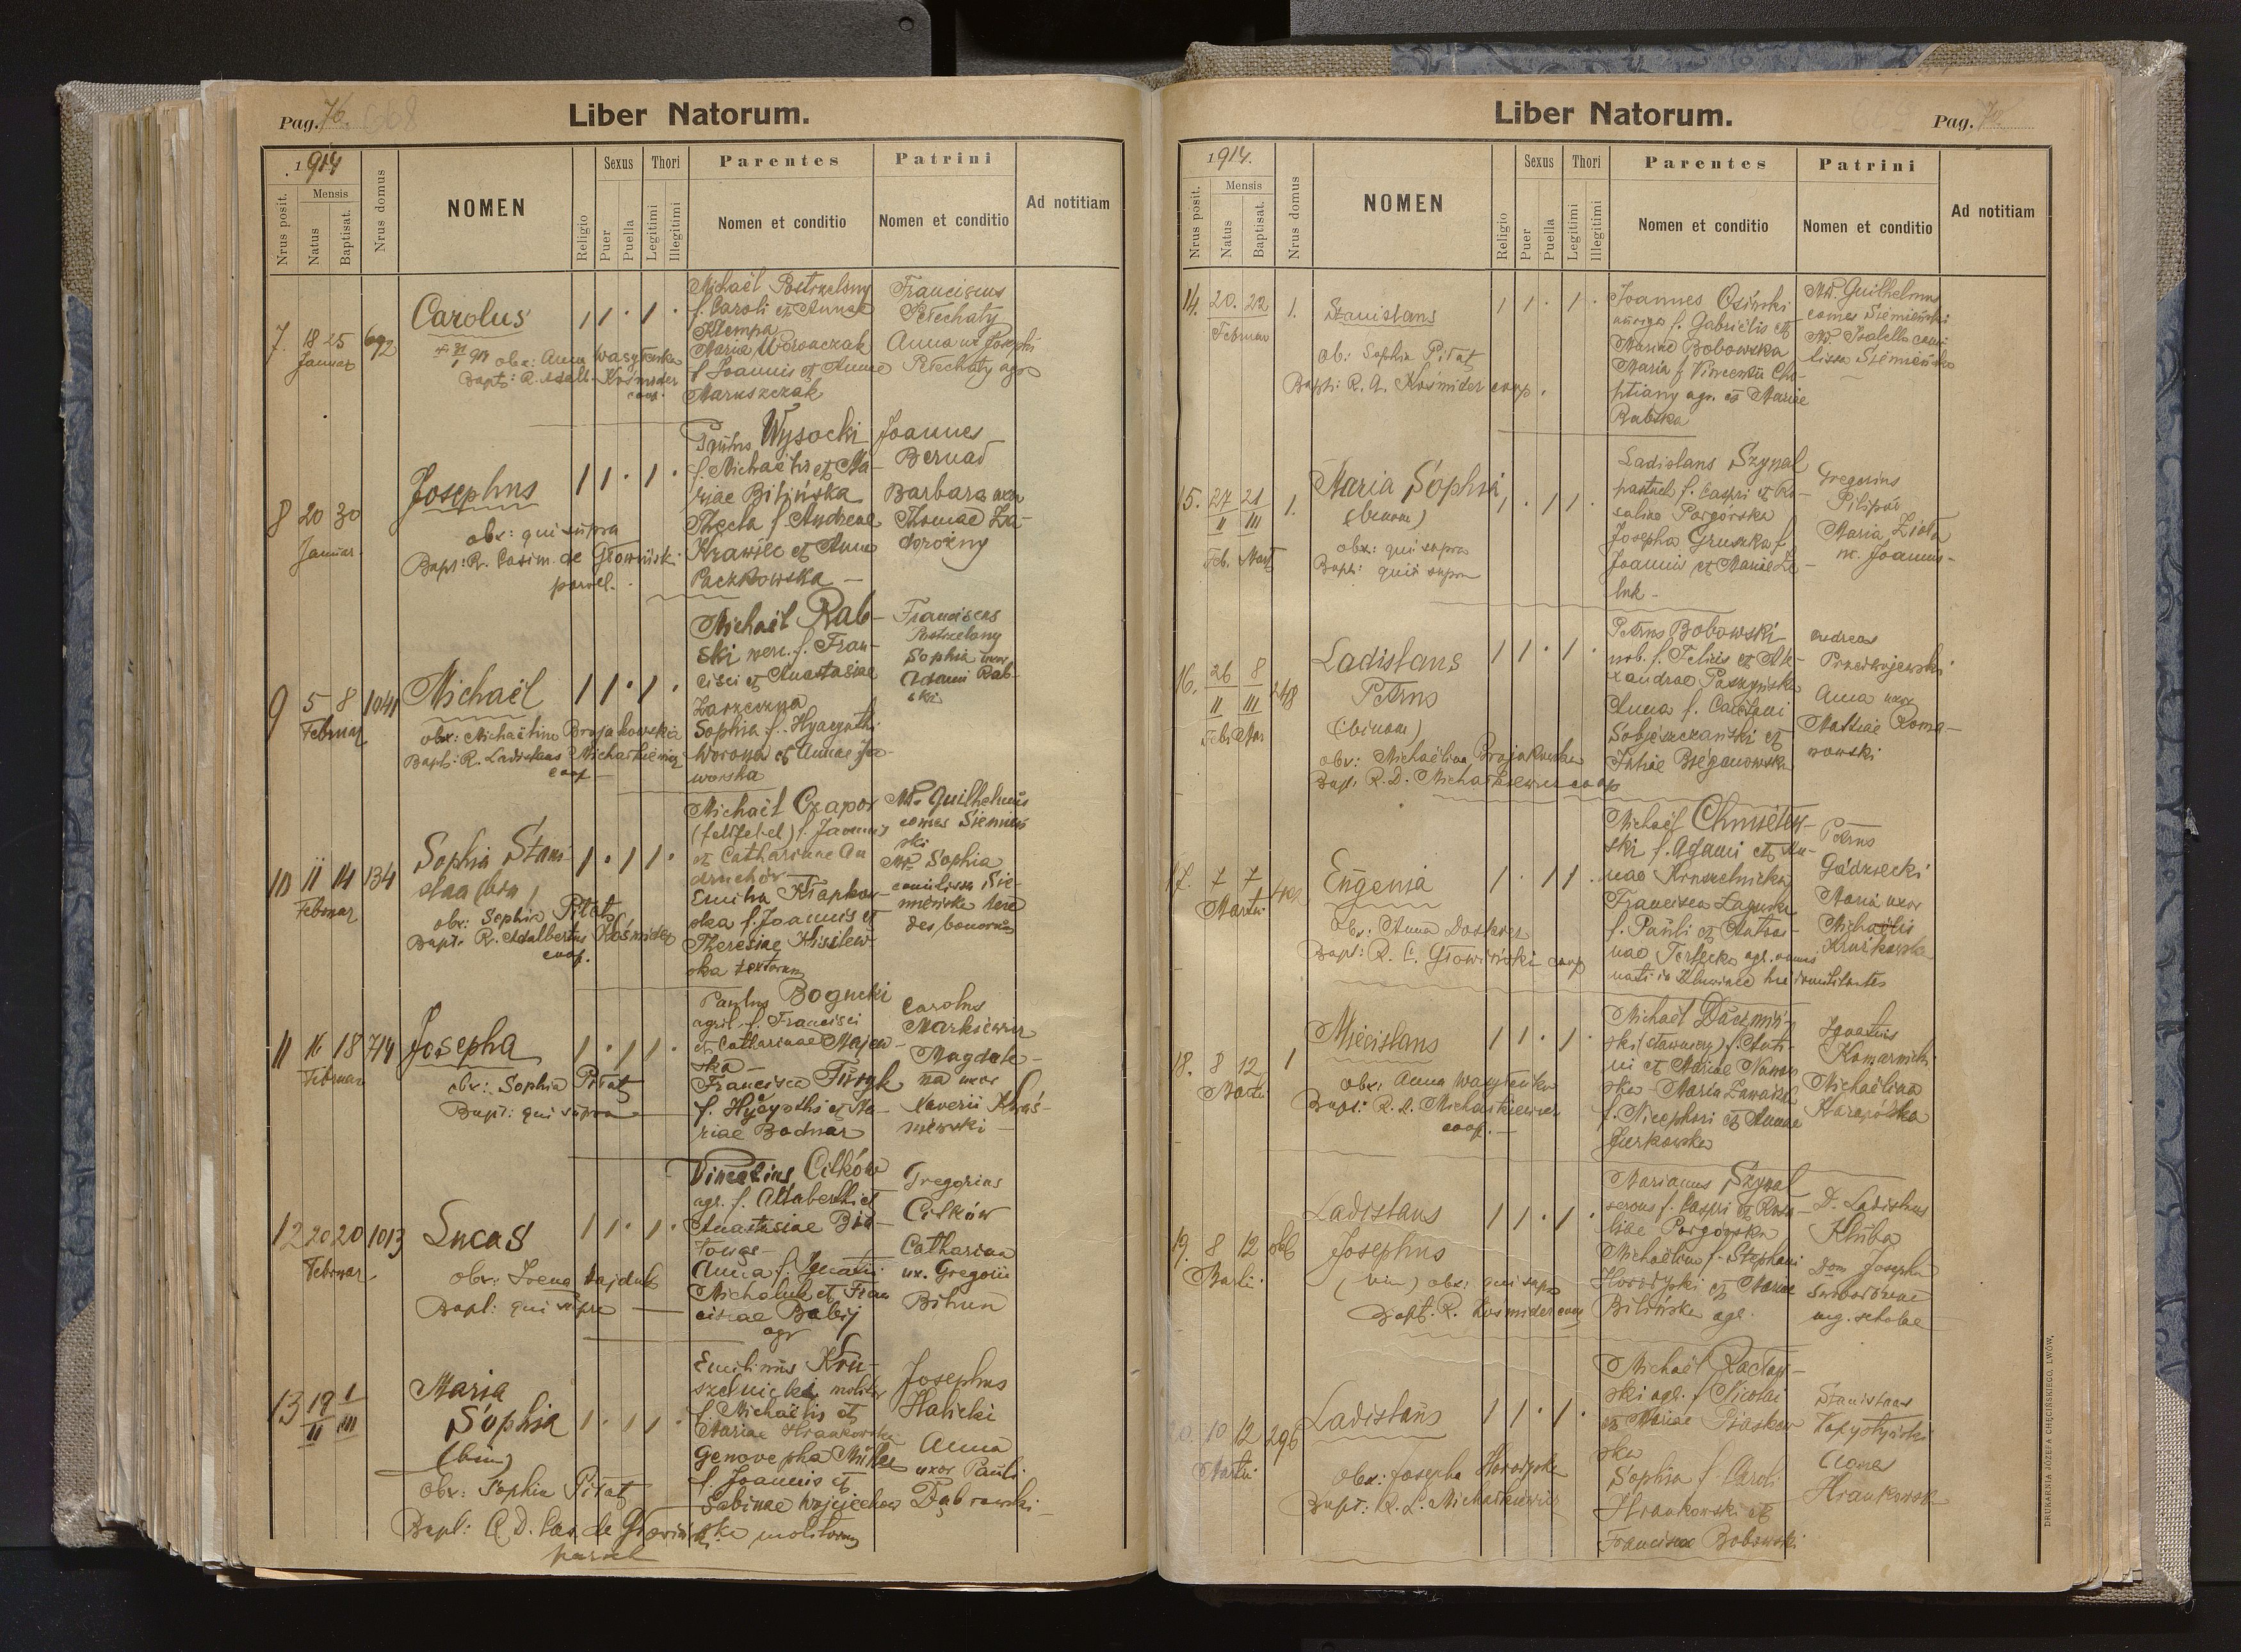 Pag. 76.
Liber Natorum.
1914
Nrus posit.
Mensis
Natus
Baptisat.
Nrus domus
NOMEN
Religio
Sexus
Puer
Puella
Thori
Legitimi
Illegitimi
Parentes
Nomen et conditio
Patrini
Nomen et conditio
Ad notitiam
7. 18 25 692
Januar
Carolus
obx: Anna Wasyleńka
Bapt: R. Adalb. Kośmider
coop.
Michaël Postrzelony
f. Caroli et Annae
Klempa
Maria
f. Joannis et Annae
Maruszczak
Franciscus
Petechaty
Anna ux Josephi
Petechaty agr
8 20 30
Januar.
Josephus
obx: qui supra
Bapt: R. Casim. de Głowiński
paroch.
Paulus Wysocki
f. Michaëlis et Ma-
riae Bilińska
Thecla f. Andreae
Krawiec et Annae
Paczkowska —
Joannes
Bernad
Barbara uxor
Thomae Za-
dorożny
9 5 8 1041
Februar
Michaël
obx: Michaëlina Brojakowska
Bapt: R. Ladislaus Michałkiewicz
coop
Michaël Rab-
ski f. Fran-
cisci et Anastasiae
Sophia f. Hyacynthi
Worona et Annae Ja-
worska
Franciscus
Postrzelony
Sophia uxor
Adami Rab-
ski
10 11 14 134
Februar
Sophia Stani-
slaa (bin)
obx: Sophia Piłat
Bapt: R. Adalbertus Kośmider
coop.
Michaël Czapor
(feldfebel) f. Joannis
et Catharinae An
druchów
Emilia Kłapkow-
ska f. Joannis et
Theresiae Kisilew-
ska
M. Guilhelmus
comes Siemień
ski
M. Sophia
comitissa Sie-
mieńska
des bonorum
11 16 18 714
Februar
Josepha
obx: Sophia Piłat
Bapt: qui supra
Paulus Bogucki
agril. f. Francisci
et Catharinae Majew-
ska —
Francisca
f. Hyacynthi et Ma-
riae Bodnar
Carolus
Markiewicz
Magdale-
na uxor
Xaverii Kwaś-
niewski —
12 20 20 1013
Februar.
Lucas
obx: Irena Hajduk
Bapt: qui supra
Vincentius Cilków
agr. f. Adalberti et
Anastasiae Bia-
towąs
Anna f. Ignatii
Michaluk et Fran
ciscae Babij
agr
Gregorius
Cilków
Catharina
ux. Gregorii
Bihun
13 19 1
II III
Maria
Sophia
(bin)
obx: Sophia Piłat
Bapt: R. D. Cas. de Głowiński
paroch
Emilianus Kru-
szelnicki molitor
f. Michaëlis et
Mariae Hrankowska
Genovepha Müller
f. Joannis et
Sabinae Wojciechow
ska molitorum
Josephus
Halicki
Anna
uxor Pauli
Dąbrowski
Liber Natorum.
Pag.
1914.
Nrus posit.
Mensis
Natus
Baptisat.
Nrus domus
NOMEN
Religio
Sexus
Puer
Puella
Thori
Legitimi
Illegitimi
Parentes
Nomen et conditio
Patrini
Nomen et conditio
Ad notitiam
14. 20. 22 1.
Februar
Stanislaus
ob: Sophia Piłat
Bapt: R. A. Kośmider coop.
Joannes Osiński
auriga f. Gabriëlis et
Mariae Bobowska
Maria f. Vincentii Chu-
ptiany agr. et Mariae
Rabska
M. Guilhelmus
comes Siemieński
M. Isabella comi
tissa Siemieńska
15. 27 21 1.
II III
Feb. Mart
Maria Sophia
(binom)
obx: qui supra
Bapt: qui supra
Ladislaus Szynal
f. Caspri et Ro-
saliae Porgórska
Josepha Gruszka f.
Joannis et Mariae
Gregorius
Pilipów
Maria Zioła
ux. Joannis-
16. 26 8 248
II III
Febr Mar
Ladislaus
Petrus
(binom)
obx: Michaëlina Brojakowska
Bapt. R. D. Michałkiewicz coop
Petrus Bobowski
nob. f. Felicis et Ale-
xandrae Paszyńska
Anna f. Cajetani
Sobieszczański et
Juliae Brézanowska
Andreas
Anna uxor
Mathiae Roma-
nowski
17. 7 7
Martii
Eugenia
obx: Anna Doskocz
Bapt: R. C. Głowiński coop
Michaël Chmielew-
ski f. Adami et An-
nae Kruszelnicka
Francisca
f. Pauli et Anto-
nae Terlecka agr.
Petrus
Godziecki
Maria uxor
Michaëlis
Kruźkowska
18. 8 12 1
Martii
Miecislaus
obx: Anna Wasyleńka
Bapt: R. L. Michałkiewicz
coop. —
Michaël Daczmiń-
ski f. Anto-
ni et Mariae
ska — Maria
f. Nicephori et Annae
Jurkowska
Ignatius
Komarnicki
Michaëlina
19. 8 12
Martii.
Ladislaus
Josephus
(bin) obx: qui supra
Bapt: R. Kośmider coop
Marianus Szynal
f. Caspri et Rosa
liae Porgórska
Michaëlina f. Stephani
Horodyski et Mariae
Bilińska agr.
D. Ladislaus
Kluba
Dom Josepha
mg. scholae
10 12 296
Martii
Ladislaus
obx: Josepha Horodyska
Bapt: R. L. Michałkiewicz
Michaël Racław-
ski agr. f. Nicolai
et Mariae Piaskow
ska
Sophia f. Caroli
Hrankowski et
Franciscae Bobowski
Stanislaus
Kopystyński
Hrankowsk
DRUKARNIA JÓZEFA CHĘCIŃSKIEGO, LWÓW.